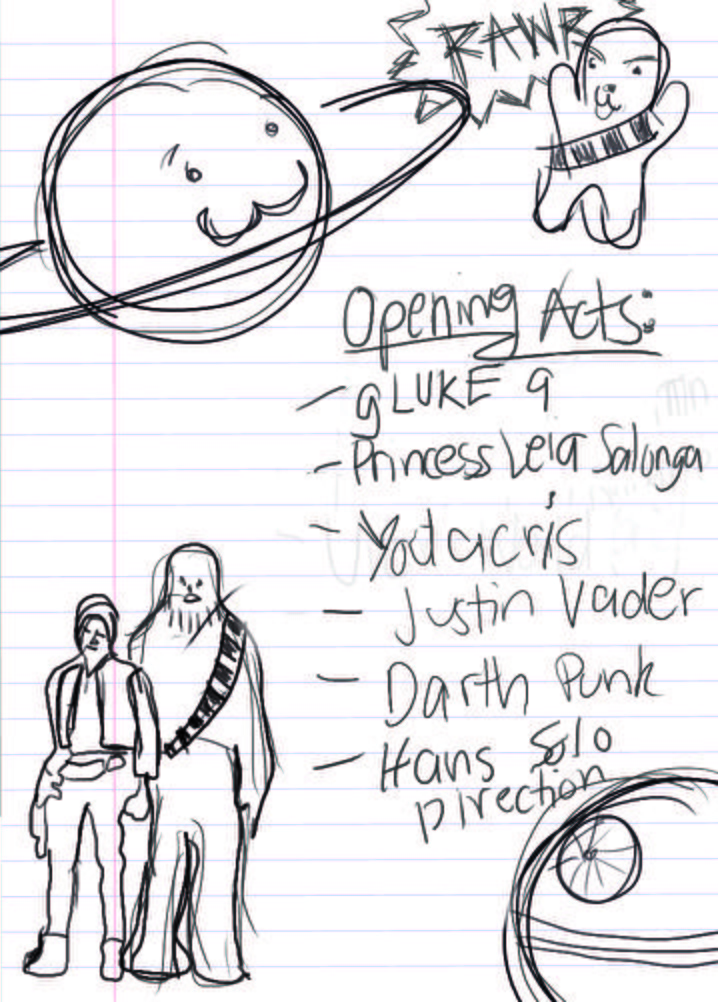 RAWR
Opening Acts:
- gLUKE 9
- Princess Leia Salonga
- Yodacris
- Justin Vader
- Darth Punk
- Hans Solo
Direction